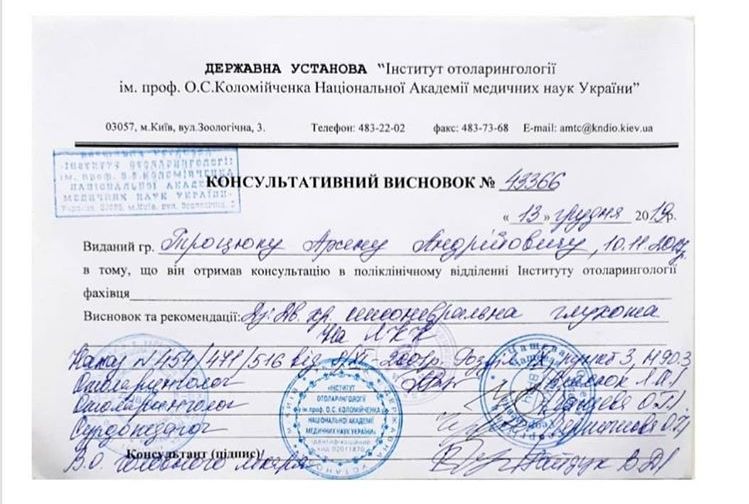 ДЕРЖАВНА УСТАНОВА "Інститут отоларингології
ім. проф. О.С.Коломійченка Національної Академії медичних наук України"
03057, м.Київ, вул.Зоологічна, 3. Телефон: 483-22-02 факс: 483-73-68 E-mail: amtc@kndio.kiev.ua
ІНСТИТУТ ОТОЛАРИНГОЛОГІЇ
ІМ. ПРОФ. О.С.КОЛОМІЙЧЕНКА
НАЦІОНАЛЬНОЇ АКАДЕМІЇ
МЕДИЧНИХ НАУК УКРАЇНИ
КОНСУЛЬТАТИВНИЙ ВИСНОВОК № 43366
« 13 » грудня 2019р.
Виданий гр. Троцюку Арсену Андрійовичу, 10.11.2017р.
в тому, що він отримав консультацію в поліклінічному відділенні Інституту отоларингології
фахівця
Висновок та рекомендації: Дз: Дв. хр. сенсоневральна глухота
На ЛКК
Наказ №454/471/516 від 2001р. Розділ пункт 3, Н90.3
Отоларинголог
Отоларинголог
Сурдопедагог
В.О. головного лікаря
Консультант (підпис)/
ІНСТИТУТ
ОТОЛАРИНГОЛОГІЇ
ім. проф. О.С. КОЛОМІЙЧЕНКА
НАЦІОНАЛЬНОЇ АКАДЕМІЇ
МЕДИЧНИХ НАУК УКРАЇНИ